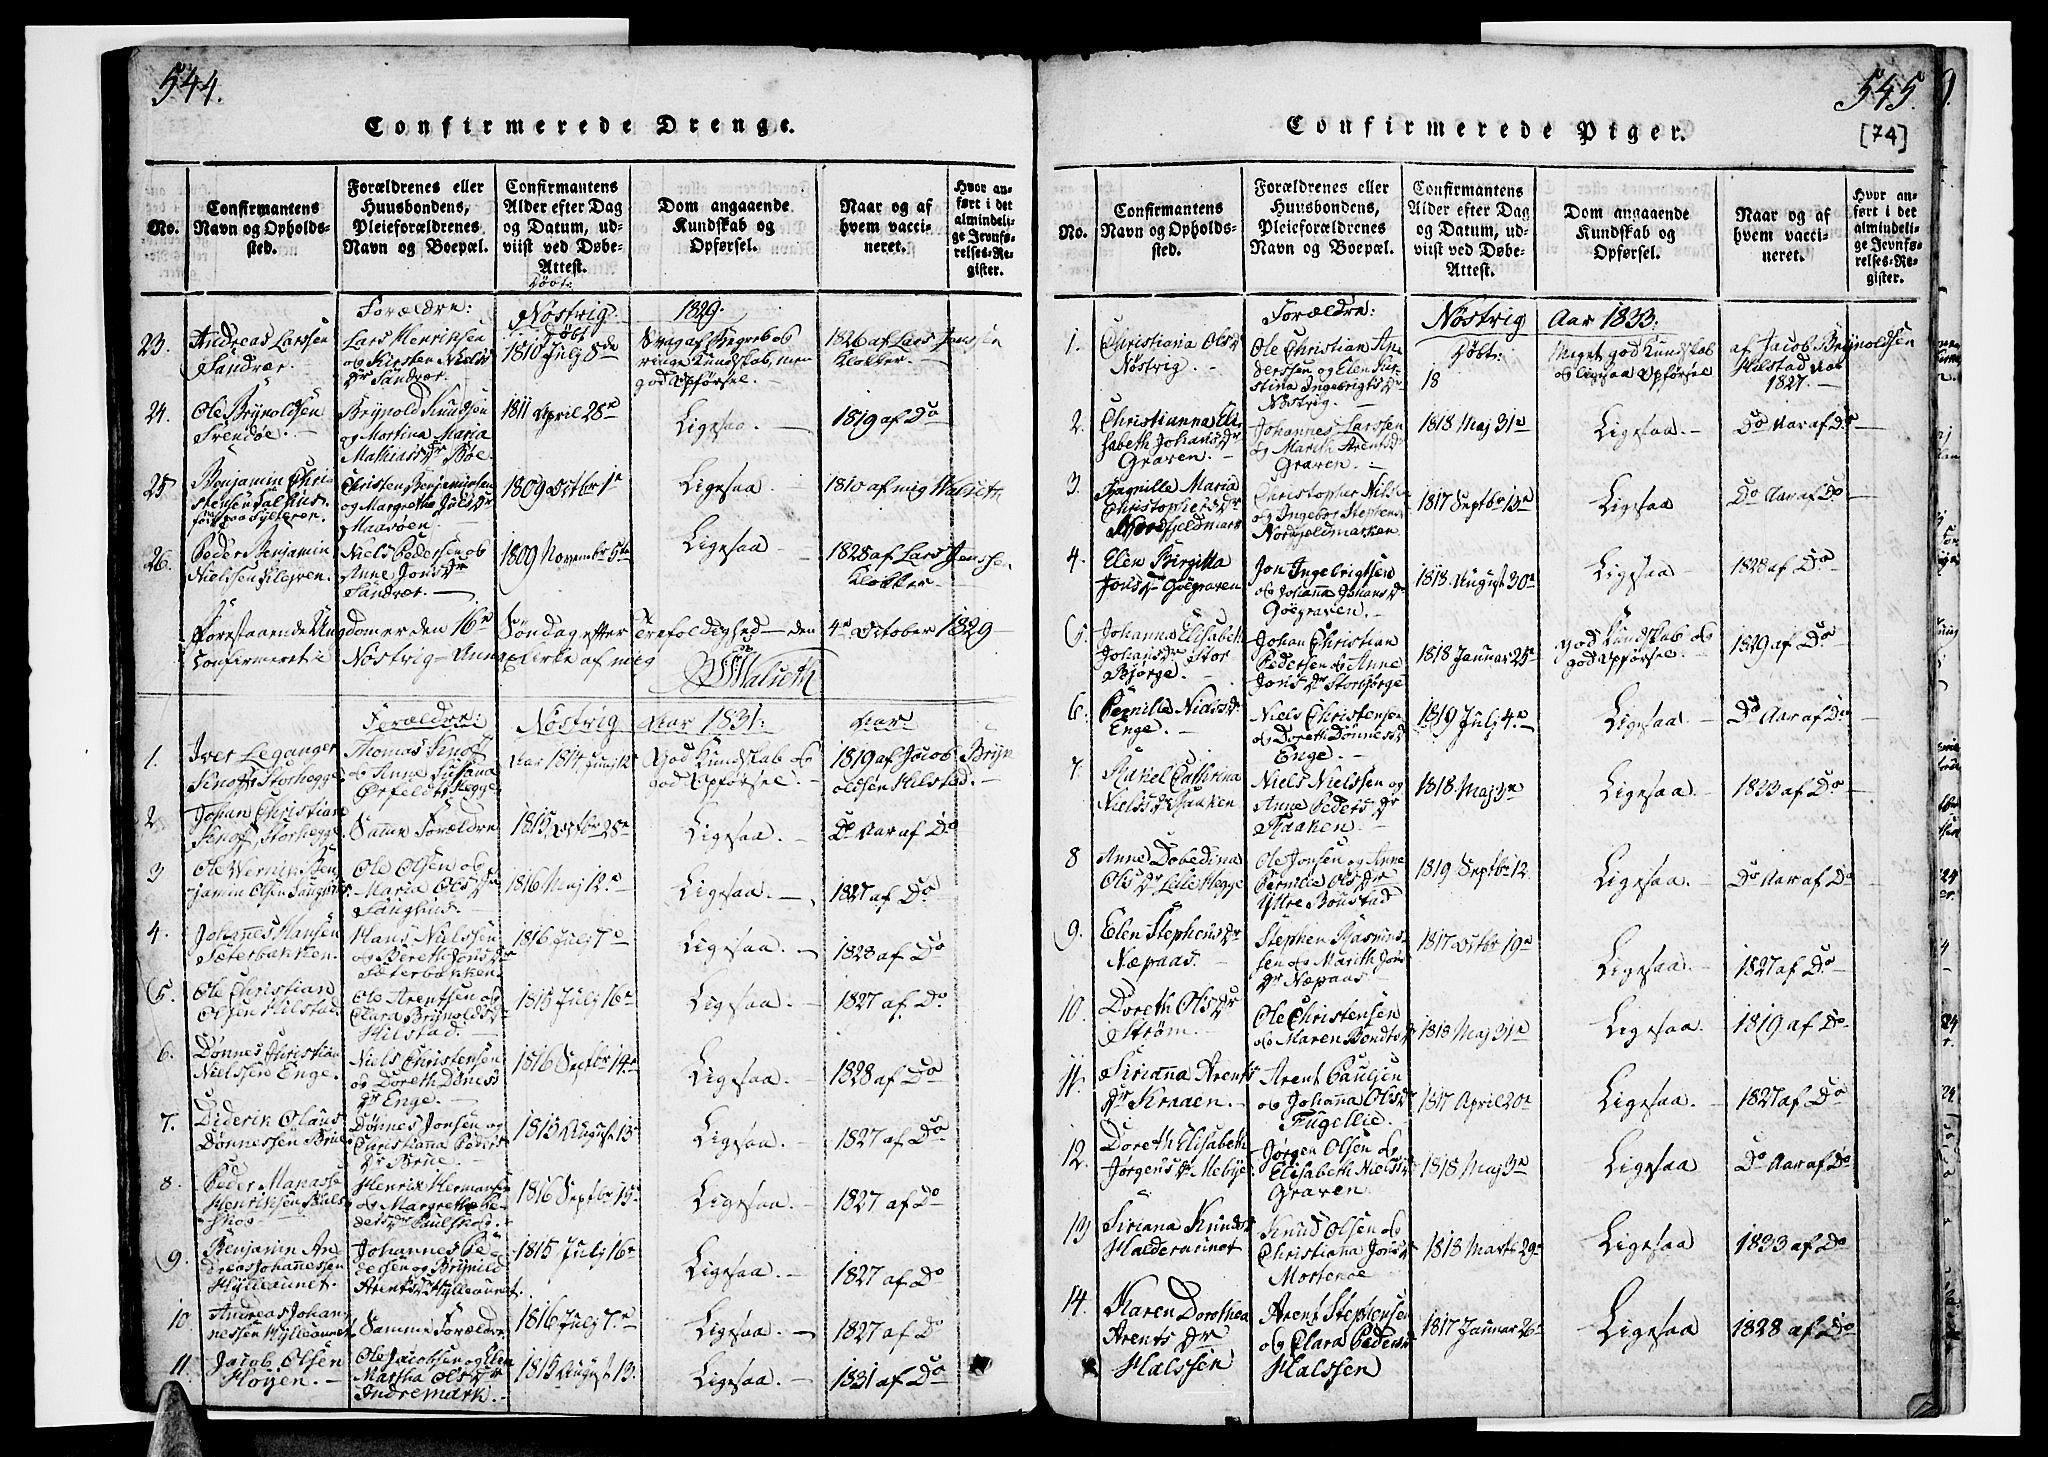 544.
Confirmerede Drenge.
No.
Confirmantens
Navn og Opholds-
sted.
Forældrenes eller
Huusbondens,
Pleieforældrenes
Navn og Boepæl.
Confirmantens
Alder efter Dag
og Datum, ud-
viist ved Døbe-
Attest.
Døbt:
Dom angaaende
Kundskab og
Opførsel.
Naar og af
hvem vacci-
neret.
Hvor an-
ført i det
almindeli-
ge Jevnfø-
relses-Re-
gister.
Forældre: Nöstvig 1829.
23. Andreas Larssen
Sandvær
Lars Henrichsen
og Kirsten Niels
Dr Sandvær
Døbt
1810 Julj 8de
Svag Begreb og
ringe Kundskab, men
god Opførsel.
1826 af Lars Jenssen
Klokker.
24. Ole Brynoldsen
Svendøe.
Brynold Knudsen
og Mortina Maria
Mathiasdr Bøe.
1811 April 28e
Ligesaa
1819 af Do
25 Benjamin Chri-
stensen
Christen Benjaminsen
og Margrethe
Maasøen
1809 Octbr 1e
Ligesaa
1810 af mig Walseth
26. Peder Benjamin
Nielsen
Niels Pedersen og
Anne Jons Dr
Sandvær.
1809 Novembr 5te
Ligesaa
1828 af Lars Jenssen
Klokker
Forestaaende Ungdom er den 16e Søndag efter Trefoldighed den 4e October 1829
Confirmeret i Nöstvig Annex Kirke af mig
Walseth
Forældre: Nöstvig Aar 1831. Aar
1. Iver Leganger
Knoff, Storhegge
Thomas Knoff
og Anna Susana
Ørfeldt, Hegge
Aar 1814 Junj 12
God Kundskab og
god Opførsel.
1819 af Jacob Bryn
oldsen Hilstad.
2 Johan Christian
Knoff, Storhegge
Samme Forældre
1815 Octbr 28e
Ligesaa
Do Aar af Do
3 Ole Wernin Ben
jamin Olsen
Ole Olsen og
Marie Ols Dr
1816 Maj 12e
Ligesaa
1827 af Do
4. Johannes Hansen
Sæterbakken.
Hans Nielssen
og Bereth Jons Dr
Sæterbakken
1816 Julj 7e
Ligesaa
1828 af Do
5. Ole Christian
Olsen Hilstad
Ole Arentsen og
Clara Brynolds Dr
Hilstad.
1815 Julj 16e
Ligesaa
1827 af Do
6. Dønnes Christian
Nielssen Enge.
Niels Christensen
og Doreth Dønnes
Dr Enge.
1816 Septbr 14e
Ligesaa
1828 af Do
7. Diderik Olaus
Dønnessen Brue
Dønnes Jonsen og
Christianna Peders
Dr Brue.
1815 August 13e
Ligesaa
1827 af Do
8. Peder Manasse
Henriksen Pauls
skog
Henrik Hermansen
og Margrethe Pe-
dersdr Paulskog.
1816 Septbr 15e
Ligesaa
1827 af Do
9. Benjamin An
dreas Johannessen
Hylleaunet.
Johannes Pe-
dersen og Brynild
Arentsdr Hylleaunet.
1815 Julj 16e
Ligesaa
1827 af Do
10. Andreas Johan
nessen Hylleaunet
Samme Forældre
1816 Julj 7e
Ligesaa
1827 af Do
11. Jacob Olsen
Høyen.
Ole Jacobsen og Elen
Martha Ols Dr
Indremark
1815 August 13.
Ligesaa.
1831 af Do
545.
[74]
Confirmerede Piger.
No.
Confirmantens
Navn og Opholds-
sted.
Forældrenes eller
Huusbondens,
Pleieforældrenes
Navn og Boepæl.
Confirmantens
Alder efter Dag
og Datum, ud-
viist ved Døbe-
Attest.
Dom angaaende
Kundskab og
Opførsel.
Naar og af
hvem vacci-
neret.
Hvor an-
ført i det
almindeli-
ge Jevnfø-
relses-Re-
gister.
Forældre: Nöstvig Aar 1833.
1. Christiana Ols Dr
Nöstvig
Ole Christian An-
derssen og Elen Kir-
stina Ingebrigts Dr
Nöstvig.
Døbt:
18
Meget god Kundskab
og ligesaa Opførsel
af Jacob Brynoldsen
Hilstad Aar
1827.
2. Christianna Eli
sabeth Johans Dr
Graven.
Johannes Larssen
og Marith Arents Dr
Graven.
1818 Maj 31e
Ligesaa.
Do Aar af Do
3. Pagnille Maria
Christophers Dr
Nordfjeldmark
Christopher Nils
og Ingebor Stephens
Nordfjeldmarken
1817 Septbr 13e
Ligesaa
Do Aar af Do
4. Elen Birgitta
Jons Dr Goegraven
Jon Ingebrigtsen
og Johanna Johans Dr
Goegraven.
1818 August 30e
Ligesaa
1828 af Do
5. Johanna Elisabeth
Johans Dr Stor
Bjørge.
Johan Christian
Pedersen og Anne
Jons Dr Storbjørge
1818 Januar 25e
God Kundskab og
god Opførsel.
1829 af Do
6. Pernille Niels Dr
Enge.
Niels Christensen
og Doreth Dønnes Dr
Enge.
1819 Julj 4e
Ligesaa
Do Aar af Do
7. Rakel Cathrina
Niels Dr Haaken
Niels Nielssen og
Anne Peders Dr
Haaken
1818 Maj 3e
Ligesaa.
1833 af Do
8 Anne Dobedina
Ols Dr Lille Hegge
Ole Jonsen og Anne
Pernille Ols Dr
Yttre Bonstad
1819 Septbr 12
Ligesaa
Do Aar af Do
9. Elen Stephens Dr
Næpaas.
Stephen Rasmus-
sen og Marith Jons
Dr Næpaas
1817 Octbr 19e
Ligesaa.
1827 af Do
10. Doreth Ols Dr
Strøm.
Ole Christensen
og Maren Bendts Dr
1818 Maj 31e
Ligesaa
1819 af Do
11. Siriana Arents
Dr Kraaen.
Arent Paulsen
og Johanna Ols Dr
Fugellie.
1817 April 20e
Ligesaa
1827 af Do
12. Doreth Elisabeth
Jørgens Dr Mebye
Jørgen Olsen og
Elisabeth Niels Dr
Graven
1818 Maj 3e
Ligesaa
Do Aar af Do
13 Siriana Knuds
Halderaunet
Knud Olsen og
Christiana Jons Dr
Mortenøe
1818 Marts 29e
Ligesaa
1833 af Do
14. Karen Dorothea
Arents Dr
Halssen
Arent Stephensen
og Clara Peders
Halssen
1817 Januar 26e
Ligesaa
1828 af Do